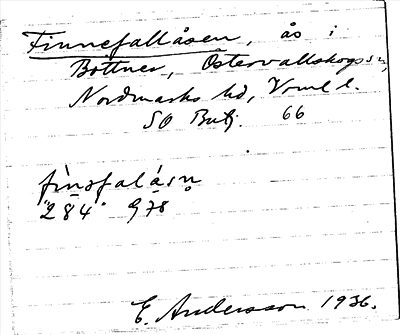 Finnefallåsen, ås i
Bottnen, Östervallskogs sn,
Nordmarks hd, Vrml l.
SO Butj. 66
fìnəfalásn̥
"284" 978
E. Andersson 1936.